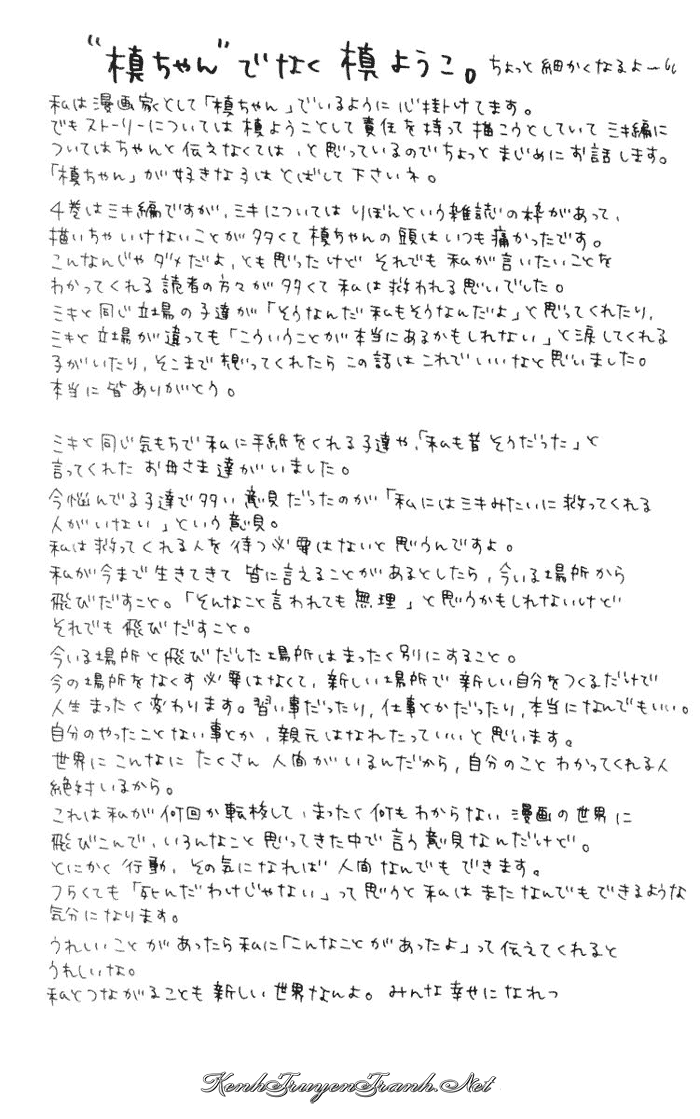 “槙ちゃん”でなく 槙ようこ。 ちょっと細かくなるよー
私は漫画家として「槙ちゃん」でいるように心掛けてます。
でもストーリーについては 槙ようことして 責任を持って 描こうとしていて ミキ編に
ついてはちゃんと伝えなくては、と思っているのでちょっと まじめに お話します。
「槙ちゃん」が好きな子は とばして 下さいネ。
4巻はミキ編ですが、ミキについては りぼんという雑誌の枠があって、
描いちゃいけないことが多くて 槙ちゃんの頭はいつも痛かったです。
こんなんじゃ ダメだよ、とも思ったけど それでも 私が言いたいことを
わかってくれる 読者の方々が多くて 私は救われる思いでした。
ミキと同じ立場の子達が「そうなんだ 私もそうなんだよ」と思ってくれたり、
ミキと立場が違っても「こういうことが本当にあるかもしれない」と涙してくれる
子がいたり、そこまで想ってくれたら この話は これで いいなと思いました。
本当に皆ありがとう。
ミキと同じ気もちで 私に手紙をくれる子達や、「私も昔そうだった」と
言ってくれた お母さま達がいました。
今悩んでる子達で多い意見だったのが「私にはミキみたいに救ってくれる
人がいない」という意見。
私は救ってくれる人を 待つ必要はないと思うんですよ。
私が今まで生きてきて 皆に言えることがあるとしたら、今いる場所から
飛びだすこと。「そんなこと言われても無理」と思うかもしれないけど
それでも 飛びだすこと。
今いる場所と飛びだした場所はまったく別にすること。
今の場所をなくす必要はなくて、新しい場所で 新しい自分をつくるだけで
人生まったく変わります。習い事だったり、仕事とかだったり、本当になんでもいい。
自分のやったことない事とか、親元はなれたっていいと思います。
世界に こんなに たくさん 人間がいるんだから、自分のこと わかってくれる人
絶対いるから。
これは私が何回か転校して、まったく何もわからない 漫画の世界に
飛びこんで、いろんなこと思ってきた中で言う意見なんだけど。
とにかく行動、その気になれば 人間なんでも できます。
つらくても「死んだわけじゃない」って思うと 私は またなんでもできるような
気分になります。
うれしいことがあったら私に「こんなことがあったよ」って伝えてくれると
うれしいな。
私とつながることも 新しい世界なんよ。 みんな幸せになれっ
KenhTruyenTranh.Net